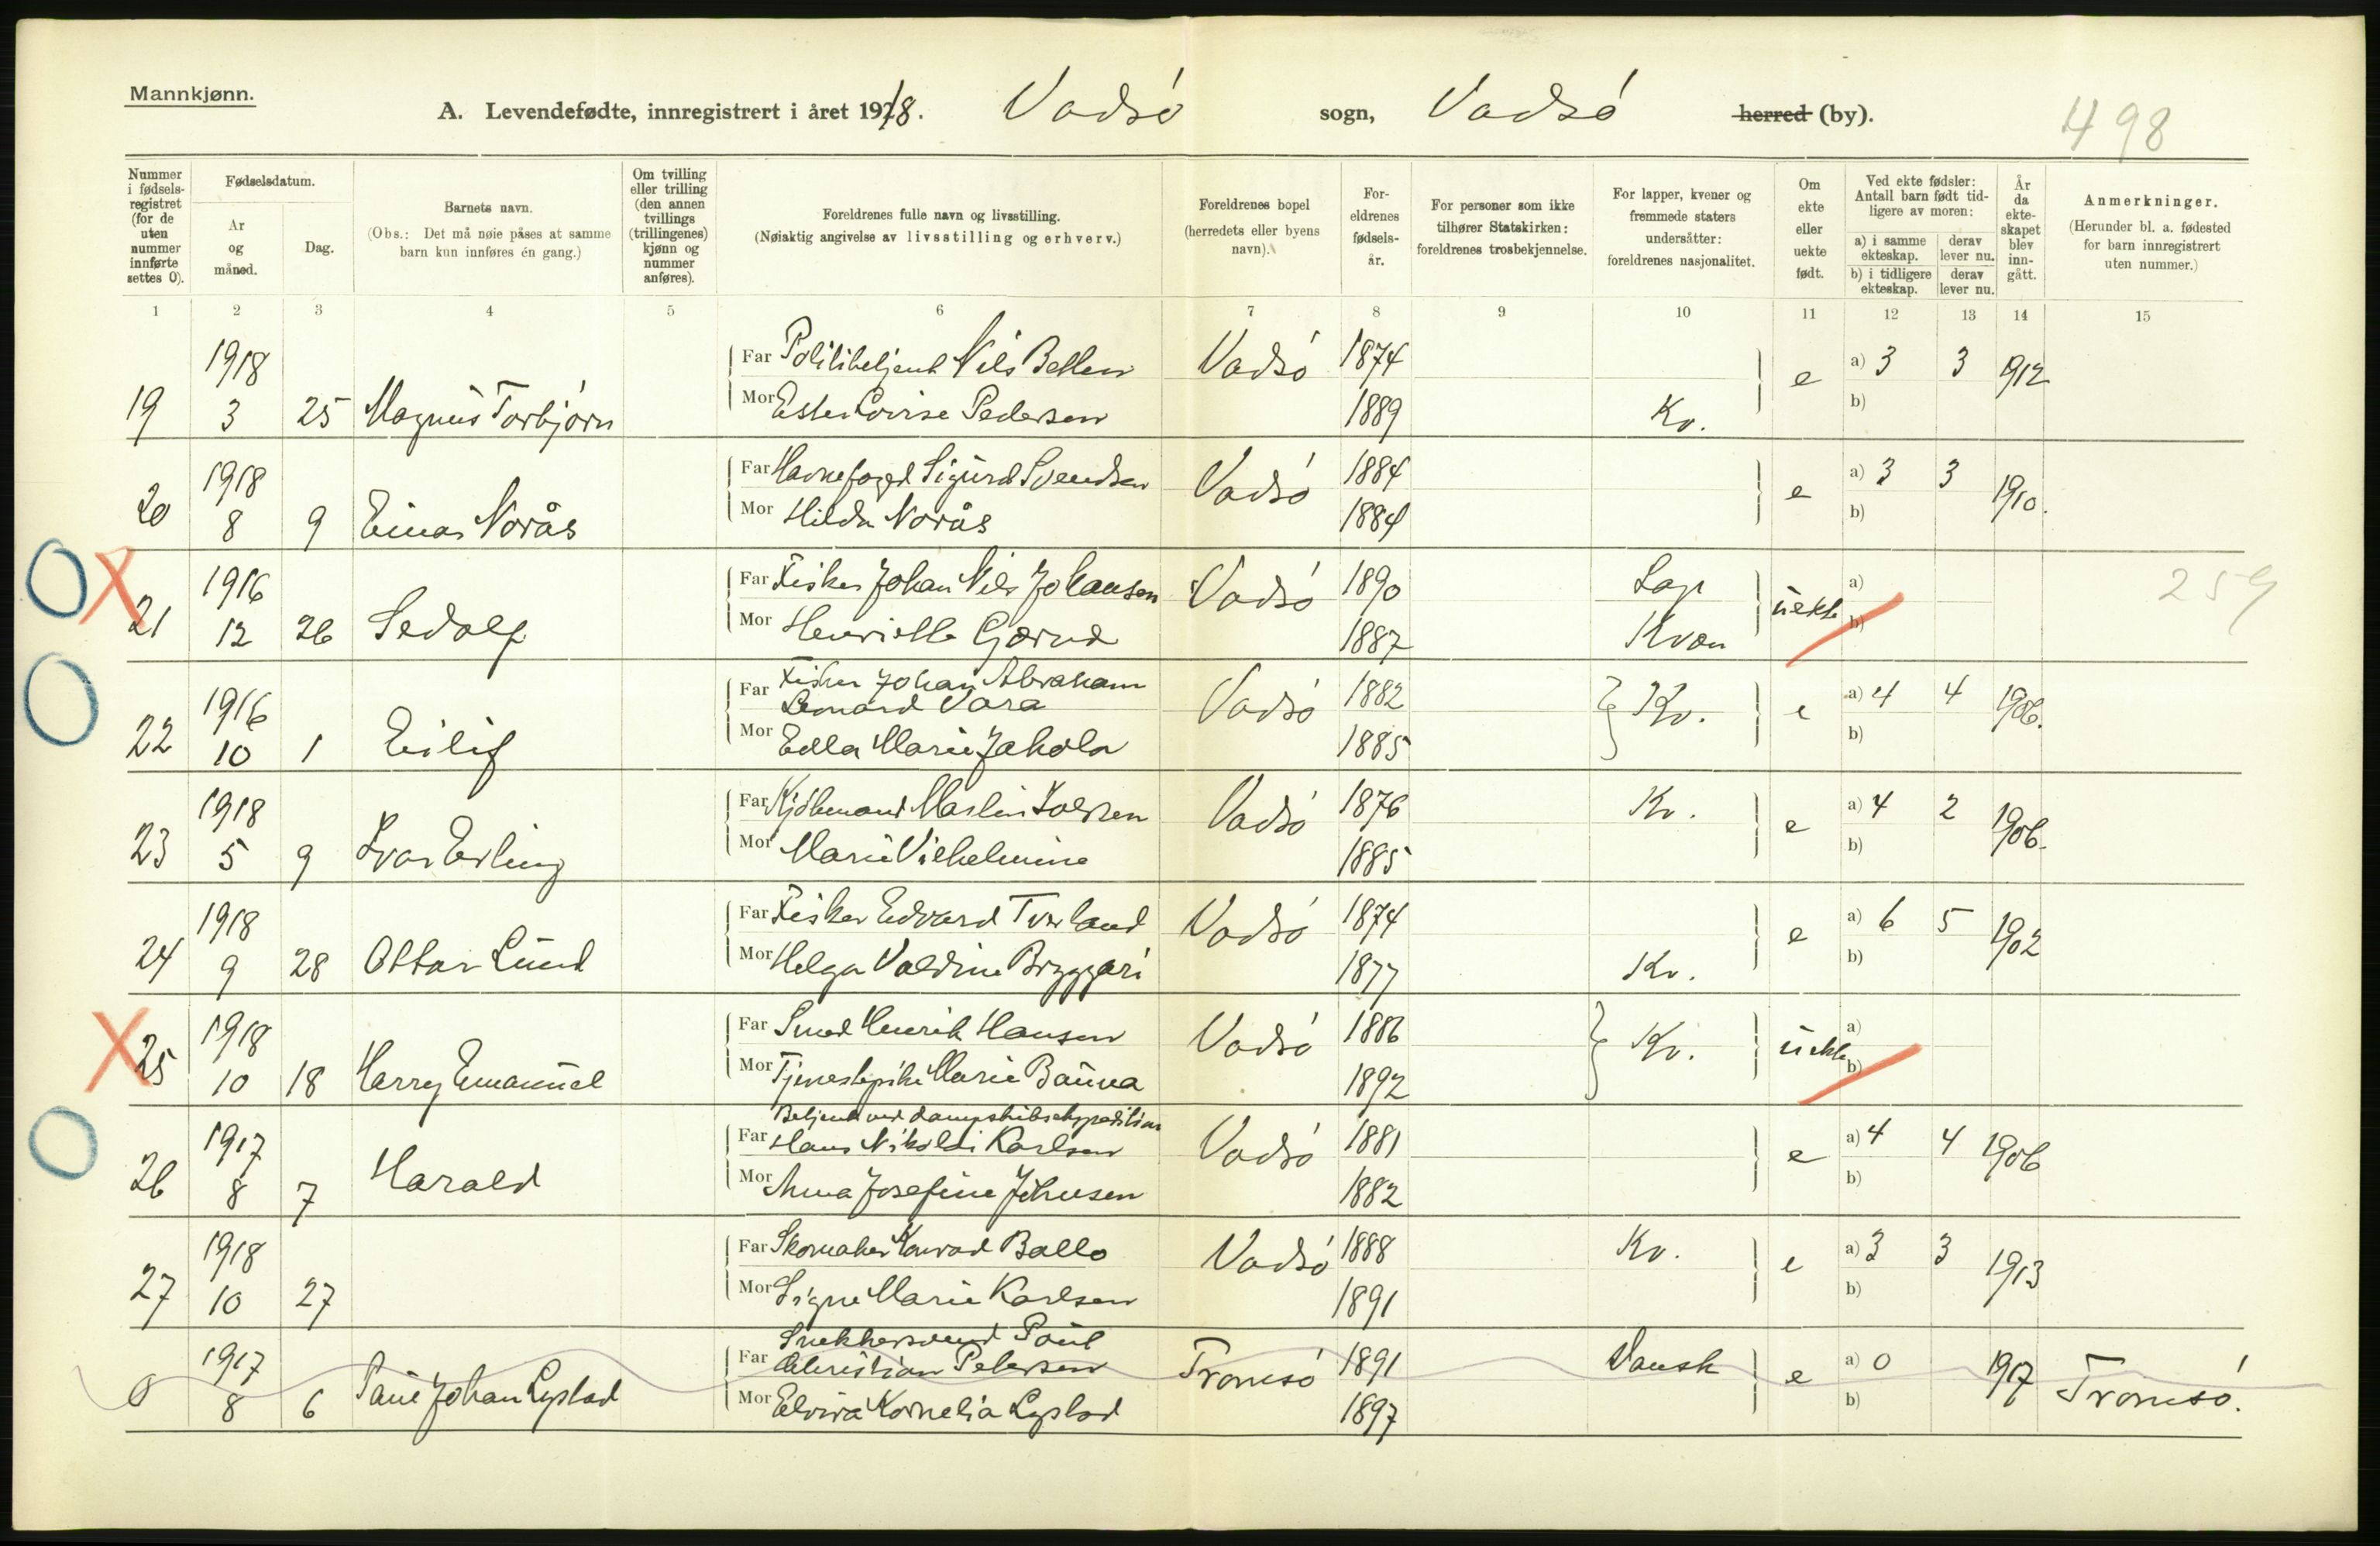 Mannkjønn.
A. Levendefødte, innregistrert i året 1918. Vadsö sogn, Vadsö herred (by).
498
Nummer i fødsels-registret (for de uten nummer innførte settes 0).
Fødselsdatum.
År og måned.
Dag.
Barnets navn.
(Obs.: Det må nøie påses at samme barn kun innføres én gang.)
Om tvilling eller trilling (den annen tvillings (trillingenes) kjønn og nummer anføres).
Foreldrenes fulle navn og livsstilling.
(Nøiaktig angivelse av livsstilling og erhverv.)
Foreldrenes bopel (herredets eller byens navn).
For-eldrenes fødsels-år.
For personer som ikke tilhører Statskirken: foreldrenes trosbekjennelse.
For lapper, kvener og fremmede staters undersåtter: foreldrenes nasjonalitet.
Om ekte eller uekte født.
Ved ekte fødsler: Antall barn født tid-ligere av moren:
a) i samme ekteskap.
derav lever nu.
b) i tidligere ekteskap.
derav lever nu.
År da ekte-skapet blev inn-gått.
Anmerkninger.
(Herunder bl. a. fødested for barn innregistrert uten nummer.)
1 2 3 4 5 6 7 8 9 10 11 12 13 14 15
1918 Far Politibetjent Nils Vadsö 1874 e a) 3 3 1912
19 3 25 Magnus Torbjörn Mor Ester Lovise Pedersen 1889 Kv. b)
1918 Far Havnefoged Sigurd Svendsen Vadsö 1884 e a) 3 3 1910.
20 8 9 Einar Norås Mor Hilda Norås 1884 b)
1916 Far Fisker Johan Nils Johansen Vadsö 1890 Lap uekte a) 259
21 12 26 Sedolf Mor Henriette 1887 Kvæn b)
1916 Far Fisker Johan Abraham Leonard Vara Vadsö 1882 Kv. e a) 4 4 1906.
22 10 1 Eilif Mor Edla Marie Jakola 1885 b)
1918 Far Kjöbmand Martin Vadsö 1876 Kv. e a) 4 2 1906.
23 5 9 Ivar Erling Mor Marie Vilhelmine 1885 b)
1918 Far Fisker Edvard Tverland Vadsö 1874 e a) 6 5 1902
24 9 28 Ottar Lund Mor Helga Valdine Bryggari 1877 Kv. b)
1918 Far Smed Henrik Hansen Vadsö 1886 Kv. uekte a)
25 10 18 Harry Emanuel Mor Tjenestepike Marie Bauna 1892 b)
1917 Far Betjent ved dampskibsekspedition Hans Nikolai Karlsen Vadsö 1881 e a) 4 4 1906
26 8 7 Harald Mor Anna Josefine Johnsen 1882 b)
1918 Far Skomaker Konrad Ballo Vadsö 1888 Kv. e a) 3 3 1913
27 10 27 Mor Signe Marie Karlsen 1891 b)
1917 Far Snekkersvend Poul Christian Petersen Tromsö 1891 Dansk e a) 0 1917 Tromsö.
0 8 6 Paul Johan Lystad Mor Elvira Kornelia Lystad 1897 b)